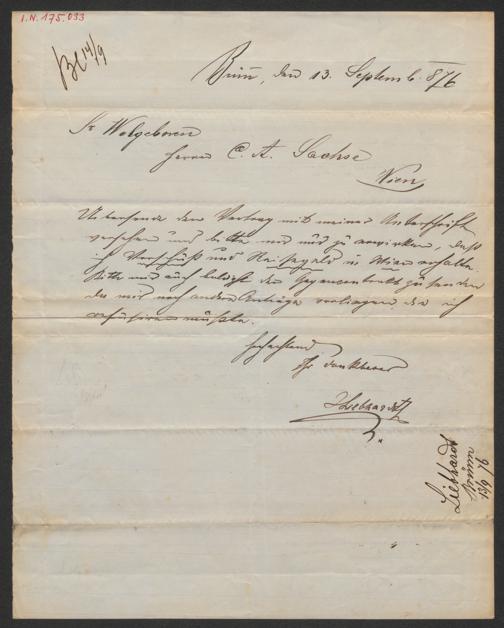 I.N. 175.033
Be 14/9
Brünn, den 13. Septemb. 876
Sr Wolgeboren
Herrn C. A. Sachse
Wien
Übersende den Vertrag mit meiner Unterschrift
versehen und bitte nur mir zu erwirken, daß
ich Vorschuß und Reisegeld in Wien erhalte.
Bitte mir auch den zu senden
da mir noch andere Anträge vorliegen die ich
müßte.
Hochachtend
Ihr dankbarer
Liebhardt
Liebhardt
Brünn
13/9 76